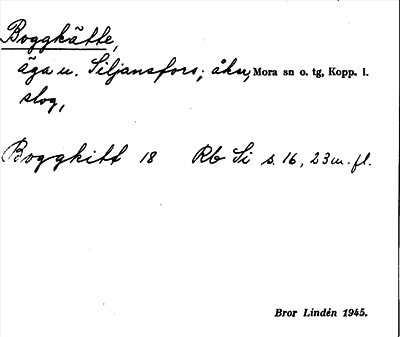 Boggkätte,
äga u. Siljansfors; åker, Mora sn o. tg, Kopp. l.
slog,
Boggkitt 18 Rb Si s. 16, 23 m. fl.
Bror Lindén 1945.